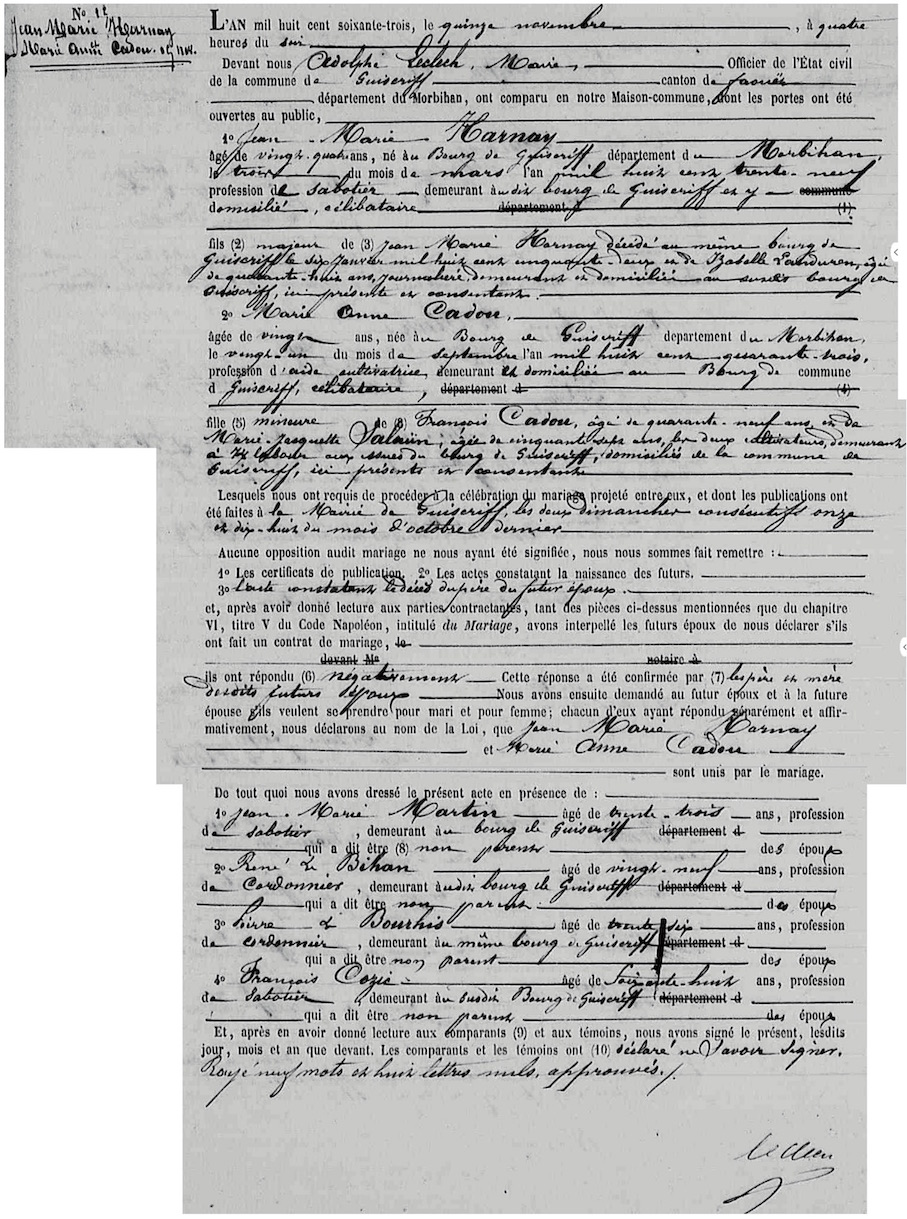 No 12
Jean Marie Harnay
Marie Anne Cadou
L'AN mil huit cent soixante-trois, le quinze novembre, à quatre
heures du soir
Devant nous Adolphe Leclech, Maire, Officier de l'État civil
de la commune de Guiscriff canton de faouët
département du Morbihan, ont comparu en notre Maison-commune, dont les portes ont été
ouvertes au public,
1o Jean Marie Harnay
âgé de vingt-quatre ans, né au Bourg de Guiscriff département du Morbihan,
le trois du mois de mars l'an mil huit cent trente-neuf
profession de sabotier demeurant audit bourg de Guiscriff et y commune
domicilié, célibataire département (1)
fils (2) majeur de (3) Jean Marie Harnay décédé au même bourg de
Guiscriff le six janvier mil huit cent cinquante-deux et de Baselle Landuren, âgée
de quarante-huit ans, journalière, demeurant et domiciliée au susdit bourg de
Guiscriff, ici présente et consentante.
2o Marie Anne Cadou,
âgée de vingt ans, née au Bourg de Guiscriff departement du Morbihan,
le vingt-un du mois de septembre l'an mil huit cent quarante-trois,
profession d'aide cultivatrice, demeurant et domiciliée au Bourg de commune
d Guiscriff, célibataire, département d (4)
fille (5) mineure de (3) François Cadou, âgé de quarante-neuf ans, et de
Marie-Josquette Salaün, âgée de cinquante-sept ans, les deux cultivateurs, demeurant
à aux issues du bourg de Guiscriff, domiciliés de la commune de
Guiscriff, ici présents et consentants
Lesquels nous ont requis de procéder à la célébration du mariage projeté entre eux, et dont les publications ont
été faites à la Mairie de Guiscriff, les deux dimanches consécutifs onze
et dix-huit du mois d'octobre dernier
Aucune opposition audit mariage ne nous ayant été signifiée, nous nous sommes fait remettre :
1o Les certificats de publication. 2o Les actes constatant la naissance des futurs.
3o l'acte constatant le décès du père du futur époux.
et, après avoir donné lecture aux parties contractantes, tant des pièces ci-dessus mentionnées que du chapitre
VI, titre V du Code Napoléon, intitulé du Mariage, avons interpellé les futurs époux de nous déclarer s'ils
ont fait un contrat de mariage, le
devant Me notaire à
ils ont répondu (6) négativement Cette réponse a été confirmée par (7) les père et mère
desdits futurs époux Nous avons ensuite demandé au futur époux et à la future
épouse s'ils veulent se prendre pour mari et pour femme; chacun d'eux ayant répondu séparément et affir-
mativement, nous déclarons au nom de la Loi, que Jean Marie Harnay
et Marie Anne Cadou
sont unis par le mariage.
De tout quoi nous avons dressé le présent acte en présence de :
1o Jean-Marie Martin âgé de trente-trois ans, profession
de sabotier, demeurant au bourg de Guiscriff département d
qui a dit être (8) non parent des époux
2o René Le Bihan âgé de vingt-neuf ans, profession
de Cordonnier, demeurant audit bourg de Guiscriff département d
qui a dit être non parent des époux
3o Pierre Le Bourhis âgé de trente six ans, profession
de cordonnier, demeurant au même bourg de Guiscriff département d
qui a dit être non parent des époux
4o François Cozic âgé de soixante-huit ans, profession
de sabotier, demeurant au susdit Bourg de Guiscriff département d
qui a dit être non parent des époux
Et, après en avoir donné lecture aux comparants (9) et aux témoins, nous avons signé le présent, lesdits
jour, mois et an que devant. Les comparants et les témoins ont (10) déclaré ne savoir signer.
Rayé neuf mots et huit lettres nuls, approuvés.